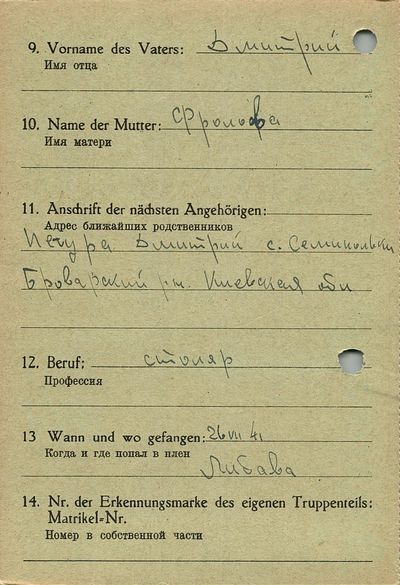 9. Vorname des Vaters: Дмитрий
Имя отца
10. Name der Mutter: Фролова
Имя матери
11. Anschrift der nächsten Angehörigen:
Адрес ближайших родственников
Печура Дмитрий с. Семиполки
Броварский р-н. Киевская обл
12. Beruf: столяр
Профессия
13 Wann und wo gefangen: 26 VII 41
Когда и где попал в плен
Либава
14. Nr. der Erkennungsmarke des eigenen Truppenteils:
Matrikel-Nr.
Номер в собственной части